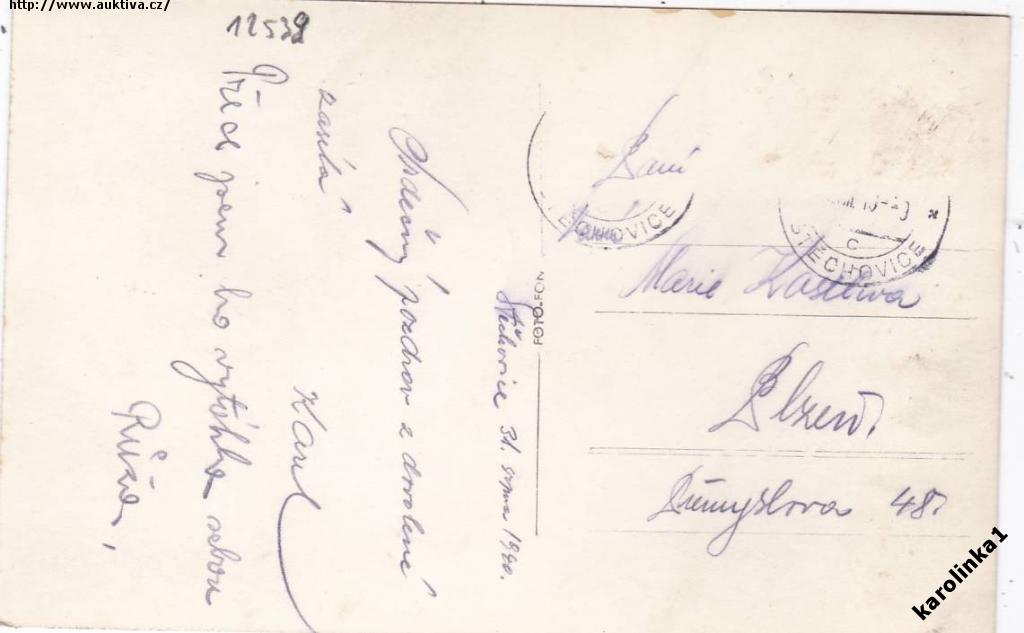 http://www.auktiva.cz/
12539
Štěchovice 31. srpna 1940.
Srdečný pozdrav z dovolené
zasílá
Karel
Přece jsem ho vytáhla sebou
Růža.
FOTO-FON
ŠTĚCHOVICE
ŠTĚCHOVICE
C
Paní
Marie
Plzeň.
Průmyslova 48.
karolinka1